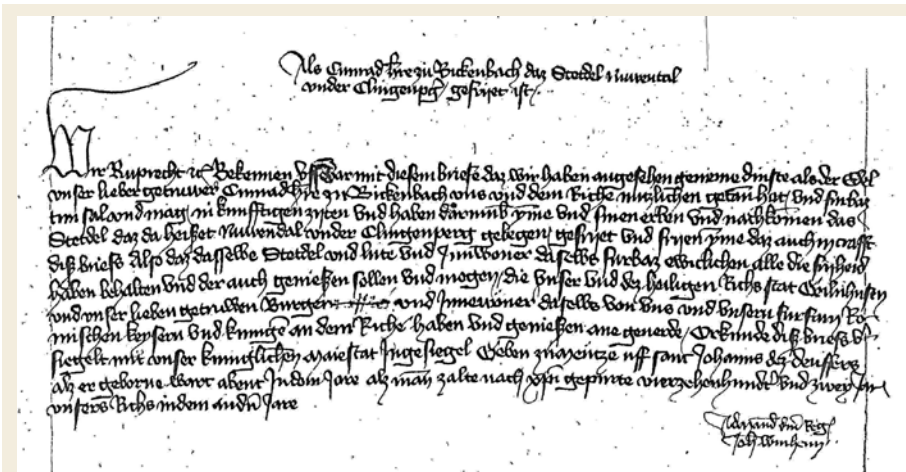 Als Cunrad h're zu Bickenbach daz Stetdel Nuwental
vnder Clingenp'g gefriet ist
Wir Ruprecht ic Bekennen vffenbar mit diesem briefe daz wir haben angesehen geneme dinste als der Edel
vnser lieber getruwer Cunrad h're zu Bickenbach vns vnd dem Riche nuczlichen getan hat vnd furbaz
tun sal vnd mag in kunfftigen zyten vnd haben darumb yme vnd sinen erben vnd nachkomen das
Stetdel daz da heisset Nuwendal vnder Clingenperg gelegen gefriet vnd frijen yme daz auch in crafft
diß briefs Also daz dasselbe Stetdel vnd lute vnd Inwoner daselbs furbaz ewiclichen alle die friheid
haben behalten vnd der auch genießen sollen vnd mogen die vnser vnd dez heiligen Richs stat Geilnhusen
vnd vnser lieben getruwen Burgere vnd Innewoner daselbs von vns vnd vnsern furfarn Ro
mischen keysern vnd kunige an dem Riche haben vnd genießen ane geuerde Orkunde diß briefs v'
siegelt mit vnser kuniglichen Maiestat Ingesiegel Geben zu Mentze uff sant Johanns dez deuffers
alz er geborne wart abent In dem Jare alz man zalte nach gepurte vierzehenhundert vnd zwey Jar
vnsers Richs in dem andern Jare
Ad mand dni Reg'
Joh Winheim